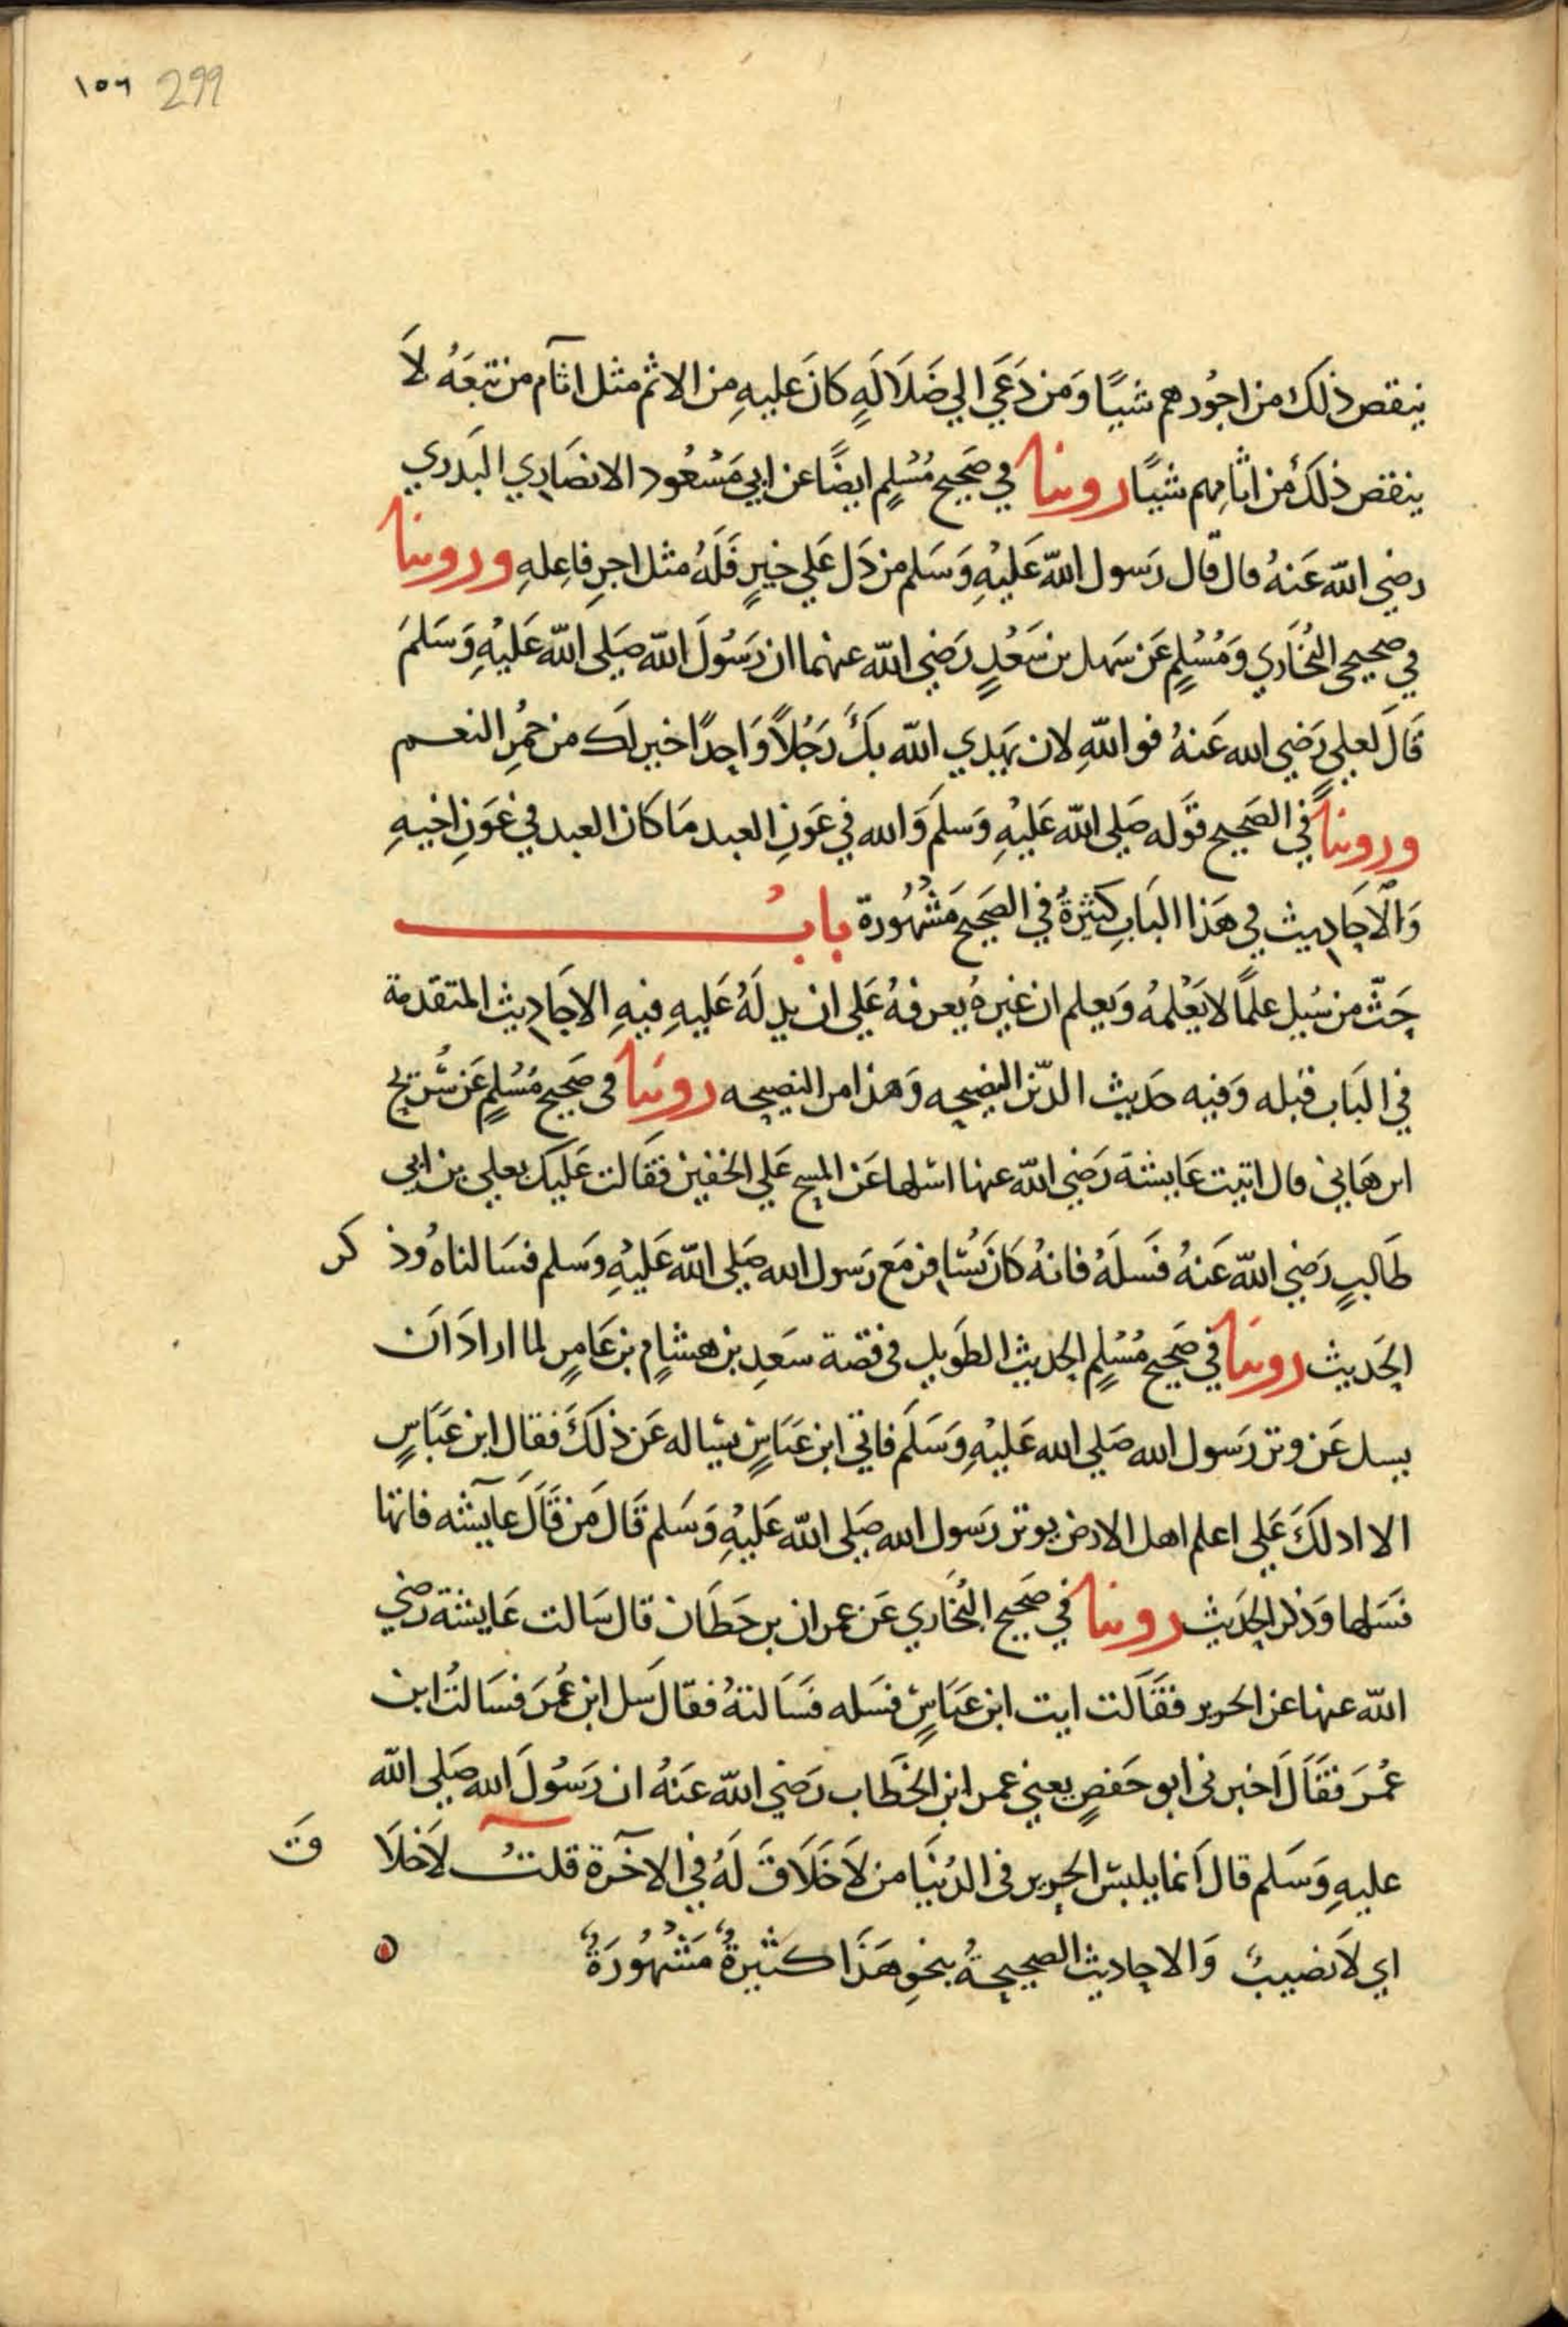 ١٥٦ 299
ينقص ذلك من اجُورهم شيًا وَمن دَعَي الي ضَلَالَهٍ كانَ عليهِ من الاثم مثل اثآم من تبعَهُ لاَ
ينقص ذلكَ من اثامِهم شيًا روينا في صَحِيح مُسْلِم ايضًا عن ابي مَسْعُود الانصَارِي البَدري
رضي الله عَنهُ قال قال رَسول الله عَليْهِ وَسَلم من دَل عَلي خيرٍ فَلَهُ مثل اجرِ فاعِلهِ وروينا
في صحيحي البُخَاري وَمُسْلِمٍ عَن سَهل بن سَعْدٍ رَضِي الله عنهما ان رَسُولَ الله صَلي الله عَليْهِ وَسَلمَ
قَالَ لعلي رَضِي الله عَنهُ فو اللهِ لان يَهدي الله بكَ رَجُلاً وَاحِدًا خير لك من حُمْرِ النعم
وروينا في الصَحِيح قَوله صَلي الله عَليْهِ وَسلمَ وَالله في عَونِ العبد مَا كَان العبد في عَونِ اخيهِ
وَالاَحَادِيث في هَذا البَابِ كَثيرةٌ في الصَحِيح مَشْهُورة بابُ
حَثّ من سُيل علمًا لا يَعْلمُه وَيعلم ان غيرهُ يعرفهُ عَلي ان يدلهُ عَليهِ فيهِ الاحَادِيث المتقدمة
في البَاب قبله وَفيه حَديث الدّين النصيحه وَهذا من النصيحه روينا في صَحِيح مُسْلِم عَن شُريح
ابن هَاني قال اتيت عَايشة رَضِي الله عنها اسْلها عَن المسح عَلي الخفين فقَالت عَليكَ بعلي بن ابي
طَالبٍ رَضِي الله عَنهُ فَسلهُ فانهُ كَانَ يُسَافر مَع رَسول الله صَلي الله عَليْهِ وَسلم فسَالناهُ وذ كر
الحَديث روينا في صَحِيح مُسْلِم الحديث الطَويل في قصة سَعدِ بن هشامٍ بن عَامرٍ لما ارادَ اَن
يسل عَن وتر رَسول الله صَلي الله عَليْهِ وَسَلَم فاتي ابن عَبَاسٍ يسَاله عَن ذلكَ فقال ابن عَبَاسٍ
الا ادلكَ عَلي اعلم اهل الارض بوتر رَسول الله صَلي الله عَليْهِ وَسَلم قَالَ مَن قَالَ عآيشه فاتها
فسَلها وَذكر الحَديث روينا في صَحِيح البُخَاري عَن عمران بن حَطَان قال سَالت عَايشة رضي
الله عنها عن الحرير فقَالت ايت ابن عَبَاسٍ فسَله فَسَالتهُ فقال سَل ابن عُمَرَ فسَالتُ ابن
عُمَرَ فقَالَ اَخبرني ابو حَفصٍ يعني عمر ابن الخَطَاب رَضِي الله عَنهُ ان رَسُولَ الله صَلي الله
عليهِ وَسَلم قال اَنما يلبسُ الحرير في الدُنيَا من لاَ خَلَاقَ لَهُ في الاخَرة قلتُ لاَخلَا قَ
اي لاَ نصيبُ وَالاحاديث الصحيحةُ بنحوِ هَذَا كثيرةٌ مَشْهُورَةٌ ه